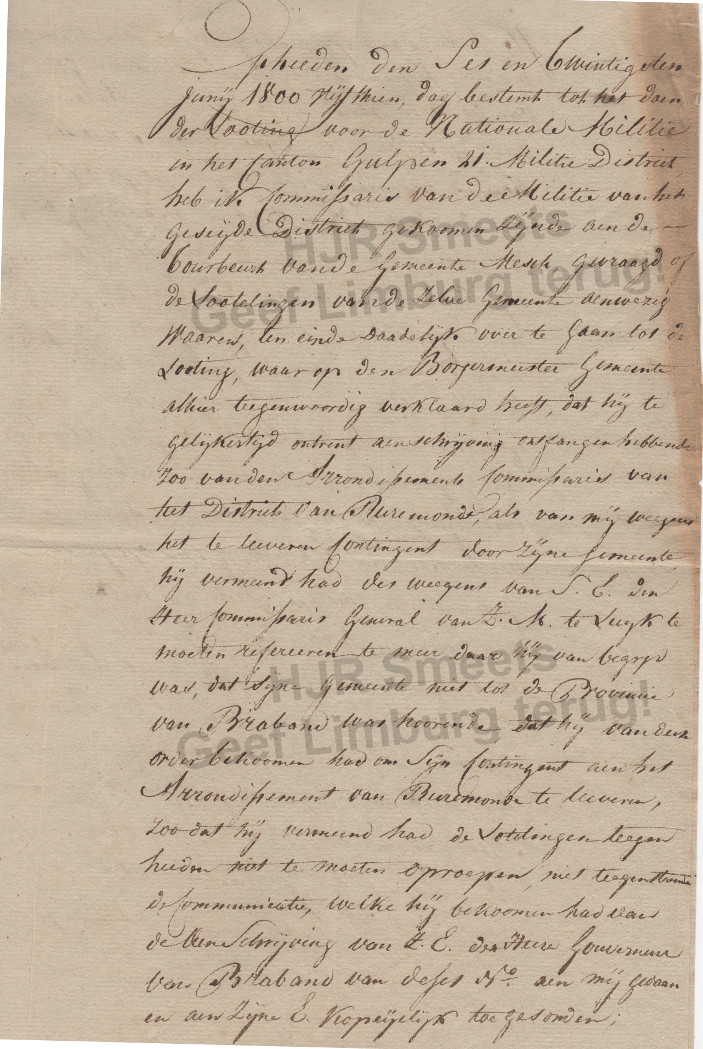 Opheeden den Ses en Twintigsten
Junij 1800 vijfthien, dag bestemt tot het doen
der Looting voor de Nationale Militie
in het Canton Gulpen 21. Militie District
heb ik Commissaris van de Militie van het
geseijde District gekoomen Zijnde aen de
Tourbeurt van de Gemeente Mesch gevraagd of
de Lootelingen van de Zelve Gemeente aenwezig
Waaren, ten einde Daadelijk over te Gaan tot de
Looting, waar op den Borgemeester Gemeente
alhier teegenwoordig verklaard heeft, dat hij te
gelijkertijd ontrent aenschrijving ontfangen hebbende
Zoo van den Arrondissements Commissaris van
het District van Ruremonde, als van mij weegens
het te leeveren Contingent door Zijne Gemeente
hij vermeend had des weegens van S. E. den
Heer Commissaris General van Z. M. te Luyk te
moeten refereeren te meer daar hij van begrip
was, dat Syne Gemeente niet tot de Provincie
van Braband was hoorende dat hij van deze
order bekoomen had om Sijn Contingent aen het
Arrondissement van Ruremonde te leeveren,
Zoo dat hij vermeend had de Lotelingen teegen
heeden niet te moeten oproepen, niet teegenstaande
de Communicatie, welke hij bekoomen had van
de Aenschrijving van Z. E. den Heere Gouverneur
van Braband van deses No. aen mij gedaan
en aen Zijne E. Kopeijelijk toegesonden;
HJR Smeets
Geef Limburg terug!
HJR Smeets
Geef Limburg terug!